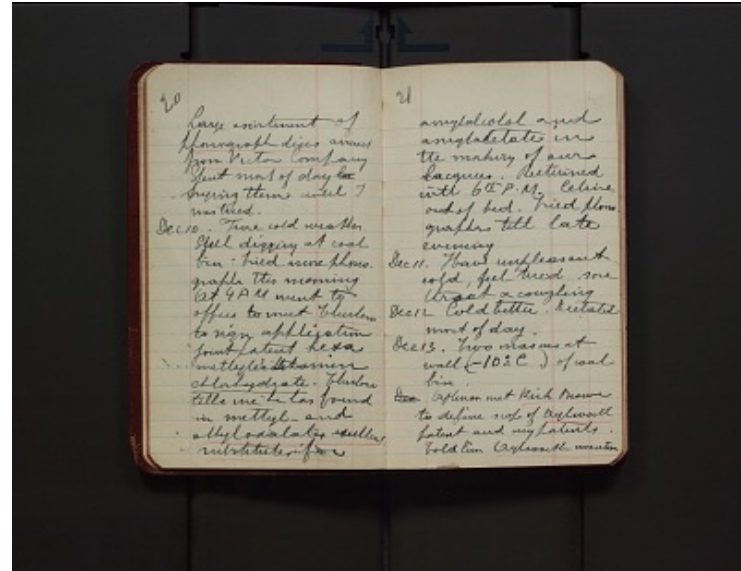 20
Large assortment of
phonograph discs arrived
from Victor Company
Spent most of day
trying them until I
was tired.
Dec 10. Fine cold weather
Still digging at coal
bin - tried more phono-
graphs this morning
At 4 P M went to
office to meet Thurlow
to sign application
joint patent hexa
methylentetramin
chlorhydrate. Thurlow
tells me he has found
in methyl- and
ethyloxalates excellent
substitutes for
21
amylalcohol and
amylacetate in
the making of our
lacquers. Returned
with 6th P.M. Celine
out of bed. Tried phono-
graphs till late
evening
Dec 11. Have unpleasant
cold, feel tired sore
throat & coughing
Dec 12 Cold better. Dictated
most of day.
Dec 13. Two masons at
wall (-10½ C) of coal
bin.
Afternoon met Rich Brown
to define scope of Aylsworth
patent and my patents.
told him Aylsworth